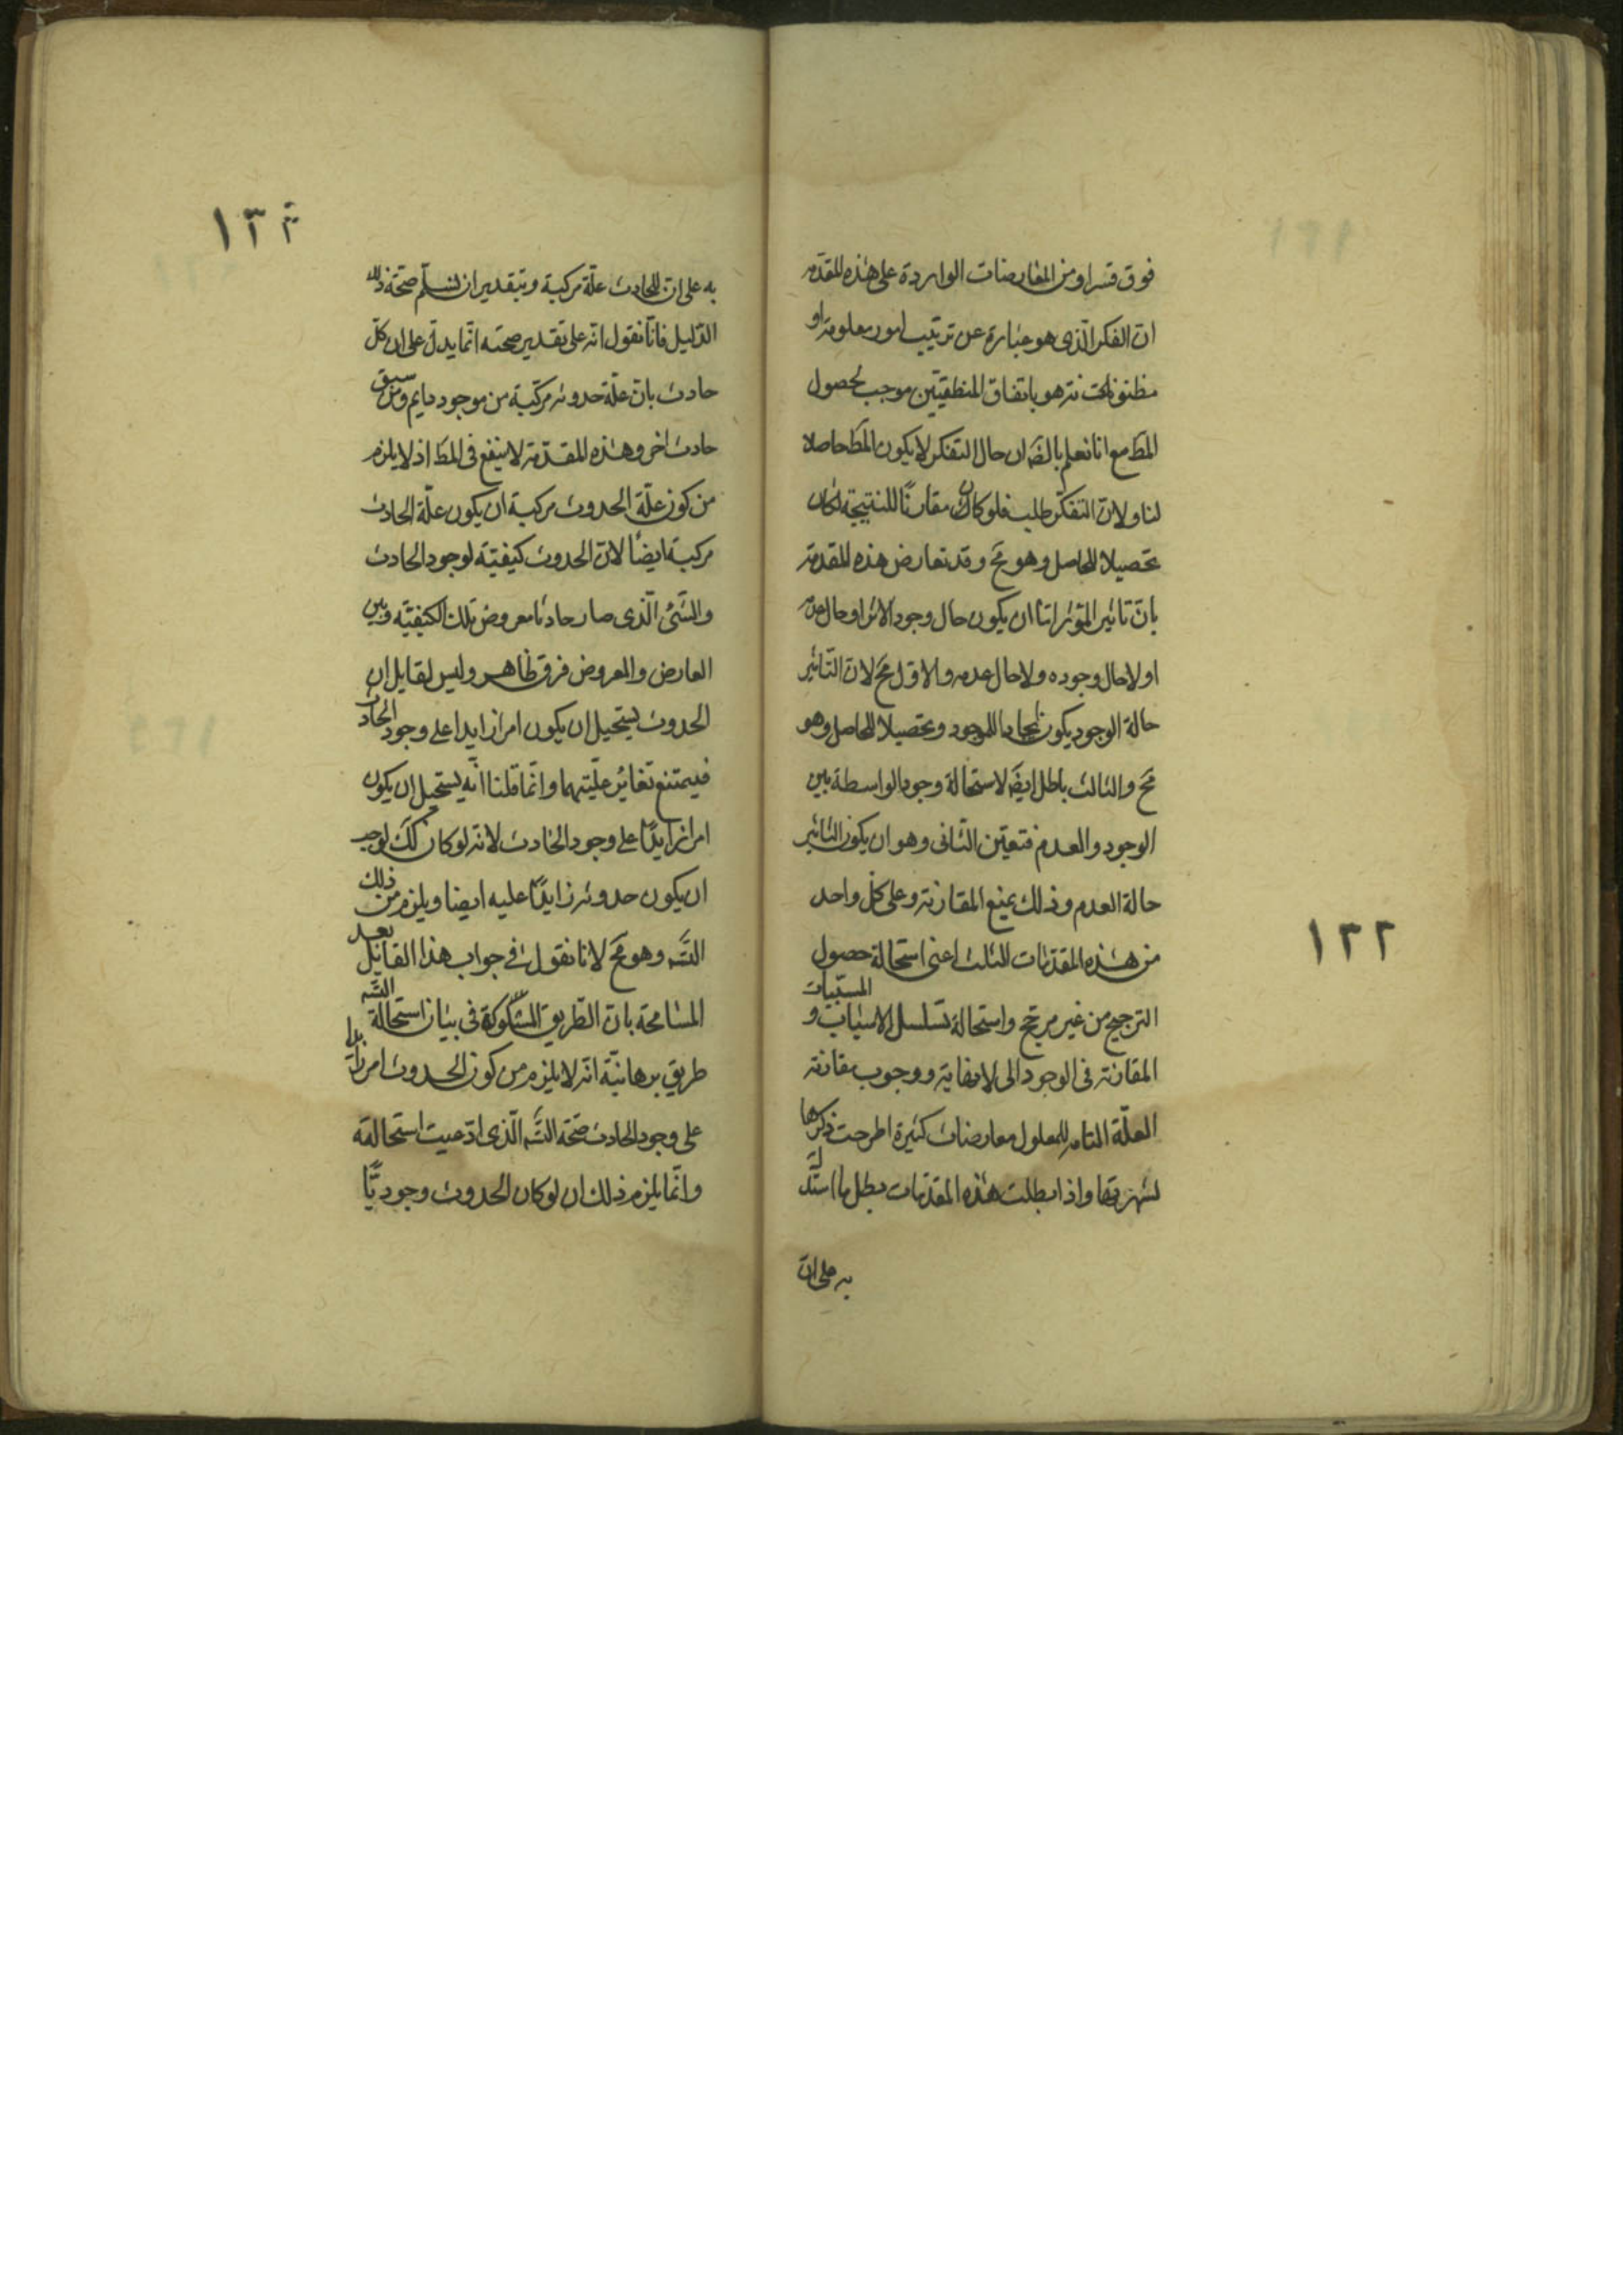 فوق قسرا ومن المعارضات الواردة على هذه المقدّمة
انّ الفكر الّذى هو عبارة عن ترتيب امور معلومة او
مظنونة هو باتفاق المنطقيّين موجب لحصول
المط مع انا نعلم بالضّ ان حال التفكّر لا يكون المط حاصلا
لنا ولانّ التفكّر طلب فلو كان مقارنًا للنتيجة لكان
تحصيلا للحاصل وهو مح وقد تعارض هذه المقدمة
بانّ تاثير المؤثر امّا ان يكون حال وجود الاثر او حال عدمه
او لا حال وجوده ولا حال عدمه والاوّل مح لانّ التّاثير
حالة الوجود يكون ايجادا للموجود وتحصيلا للحاصل وهو
مح والثالث باطل ايضَ لاستحالة وجود الواسطة بين
الوجود والعدم فتعيّن الثّانى وهو ان يكون التاثير
حالة العدم وذلك يمنع المقارنة وعلى كلّ واحد
من هذه المقدّمات الثلث اعنى استحالة حصول
الترجيح من غير مرجّح واستحالة تسلسل الاسباب و المسبّبات
المقارنة فى الوجود الى لانهاية ووجوب مقارنة
العلّة التامّة للمعلول معارضات كثيرة اطرحت ذكرها
لشهرتها واذا بطلت هذه المقدّمات بطل ما استدلّ
به على انّ
١٢٢
١٢٣
به على انّ للحادث علّة مركبة وبتقدير ان نسلّم صحّة ذلك
الدّليل فانّا نقول انّه على تقدير صحّته انّما يدلّ على ان كلّ
حادث بانّ علّة حدوثه مركّبة من موجود دايم ومن سبق
حادث اخر وهذه المقدّمة لا ينفع فى المط اذ لا يلزم
من كون علّة الحدوث مركبة ان يكون علّة الحادث
مركبة ايضًا لانّ الحدوث كيفيّة لوجود الحادث
والشّئ الّذى صار حادثا معروض تلك الكيفيّة وبين
العارض والمعروض فرق ظاهر وليس لقايل ان
الحدوث يستحيل ان يكون امرا زايدا على وجود الحادث
فيمتنع تغائر علّيتهما وانّما قلنا انّه يستحيل ان يكون
امرا زايدًا على وجود الحادث لانّه لو كان كك لوجب
ان يكون حدوثه زايدًا عليه ايضا ويلزم من ذلك
التسّ وهو مح لانا نقول فى جواب هذا القائل بعد
المسامحة بانّ الطّريق المشكوكة فى بيان استحالة التسّ
طريق برهانيّة انّه لا يلزم من كون الحدوث امرا زايدا
على وجود الحادث صحّة التسّ الّذى ادّعيت استحالته
وانّما يلزم ذلك ان لو كان الحدوث وجوديًّا